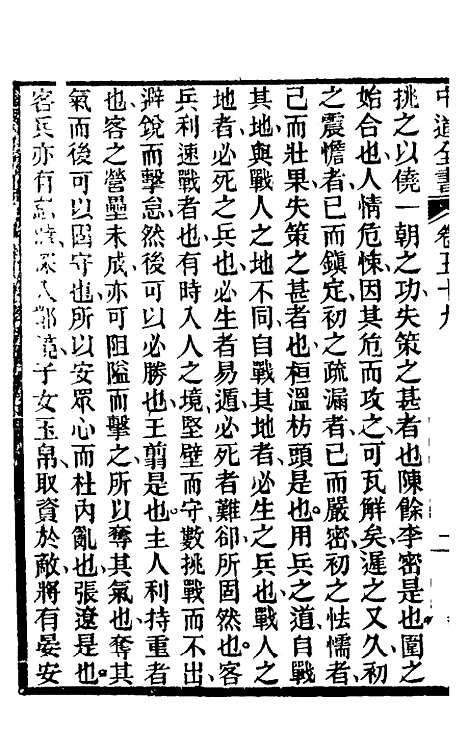 中道全書 卷五十九 二
挑之以僥一朝之功失策之甚者也陳餘李密是也圍之
始合也人情危悚因其危而攻之可瓦解矣遲之又久初
之震憺者已而鎮定初之疏漏者已而嚴密初之怯懦者
已而壯果失策之甚者也桓溫枋頭是也用兵之道自戰
其地與戰人之地不同自戰其地者必生之兵也戰人之
地者必死之兵也必生者易遁必死者難卻所固然也客
兵利速戰也有時入人之境堅壁而守數挑戰而不出
避銳而擊怠然後可以必勝也王翦是也主人利持重者
也客之營壘未成亦可阻隘而擊之所以奪其氣也奪其
氣而後可以固守也所以安眾心而杜內亂也張遼是也
客兵亦有忌深入郊子女玉帛取資於敵將有晏安